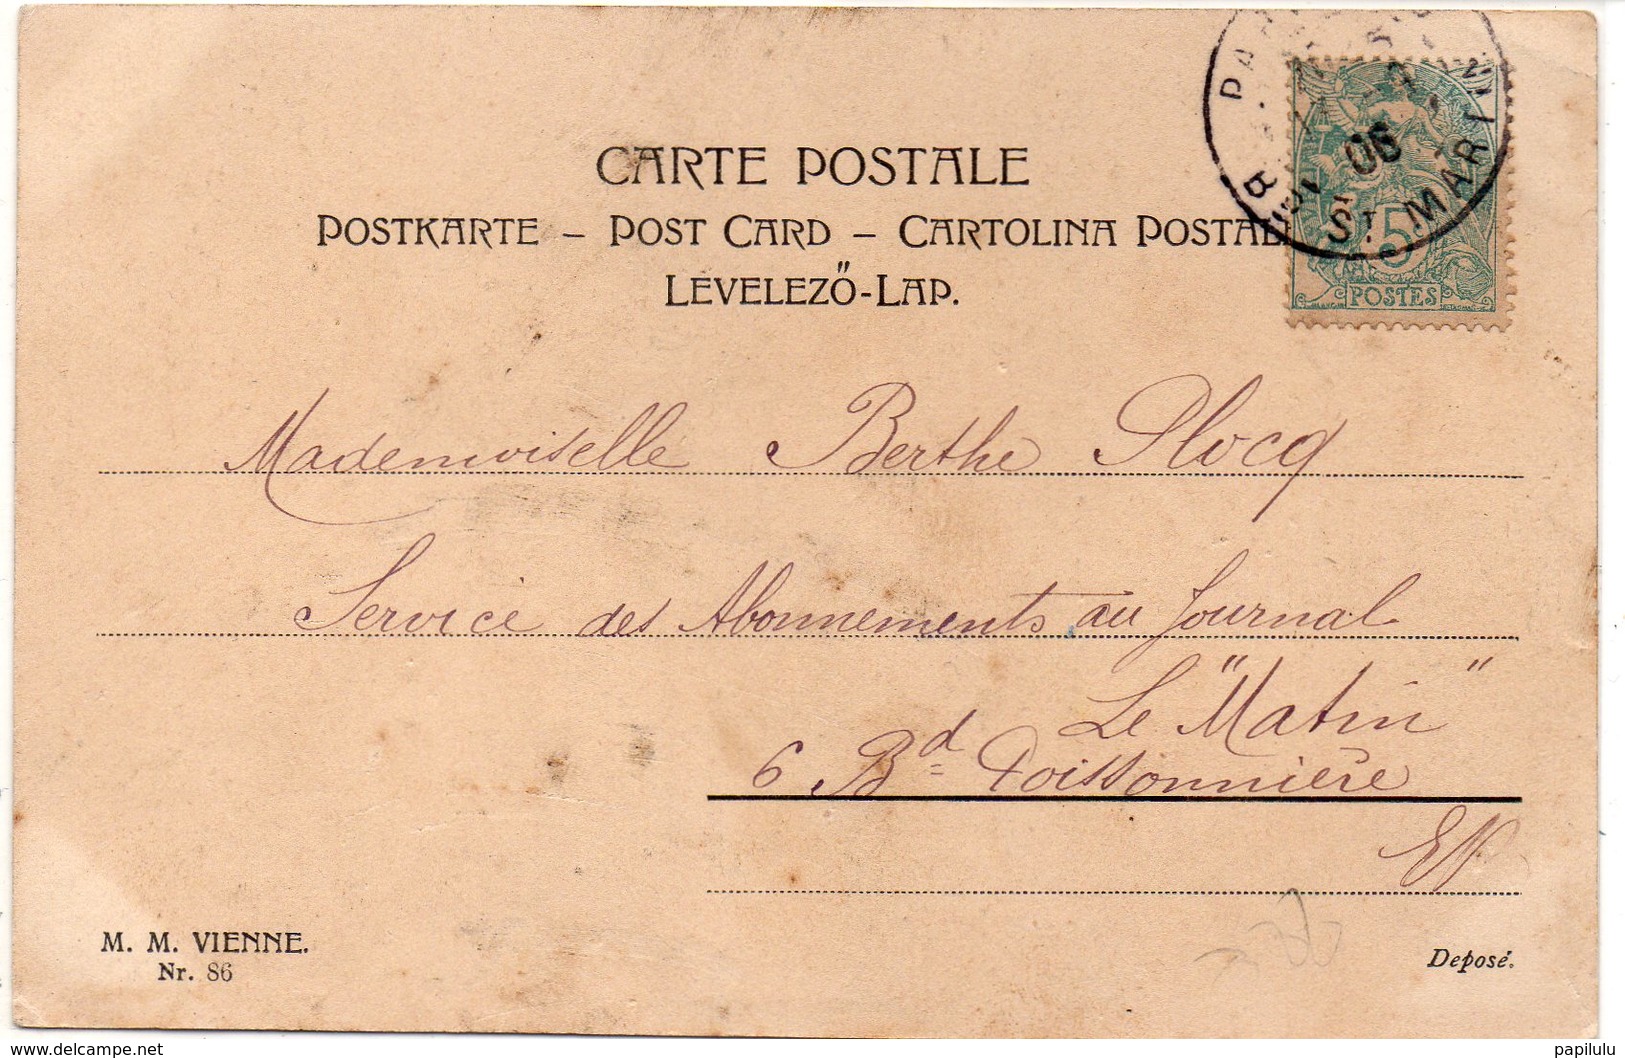 CARTE POSTALE
POSTKARTE – POST CARD – CARTOLINA POSTAL
LEVELEZŐ-LAP.
PARIS
06
R. ST MARTIN
5
POSTES
Mademoiselle Berthe Plocq
Service des Abonnements au Journal
Le "Matin"
6 Bd Poissonnière
EV
M. M. VIENNE.
Nr. 86
Deposé.
www.delcampe.net
papilulu